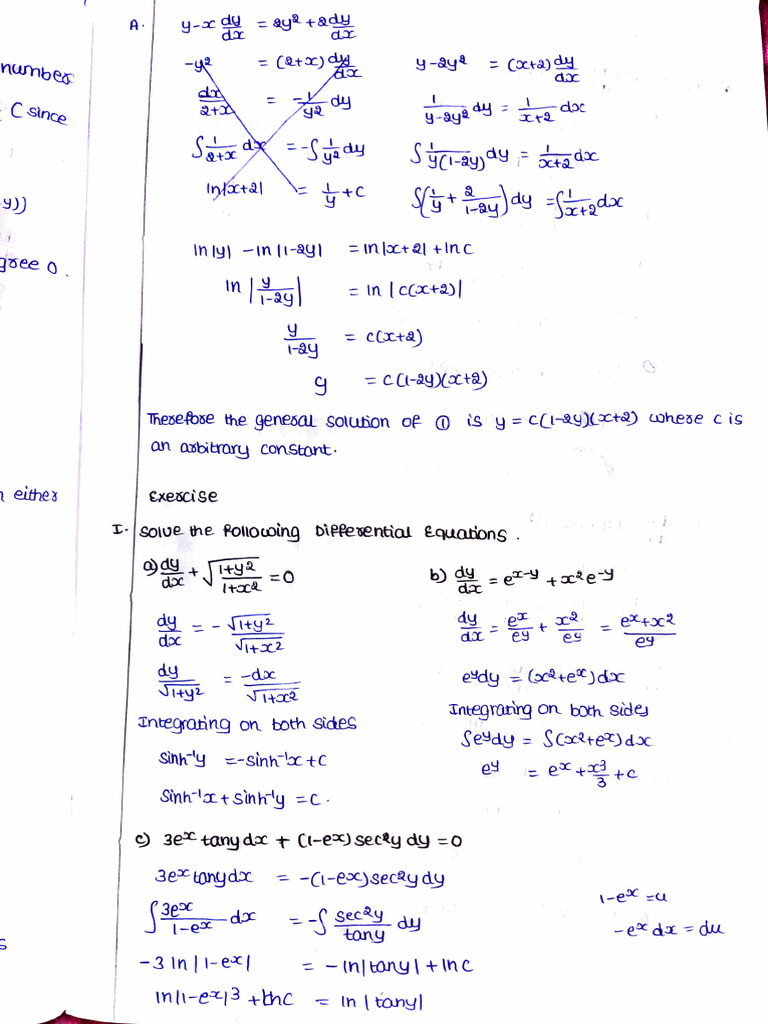 number
C since
y))
gree 0.
either
A. y-x dy/dx = 2y² + 2dy/dx
-y² = (2+x) dy/dx
dx/2+x = -1/y² dy
∫1/2+x dx = -∫1/y² dy
ln|x+2| = 1/y + c
y-2y² = (x+2) dy/dx
1/y-2y² dy = 1/x+2 dx
∫1/y(1-2y) dy = 1/x+2 dx
∫(1/y + 2/1-2y) dy = ∫1/x+2 dx
ln|y| - ln|1-2y| = ln|x+2| + lnc
ln|y/1-2y| = ln|c(x+2)|
y/1-2y = c(x+2)
y = c(1-2y)(x+2)
Therefore the general solution of ① is y = c(1-2y)(x+2) where c is
an arbitrary constant.
Exercise
I. Solve the following Differential Equations.
a) dy/dx + √1+y²/1+x² = 0
dy/dx = -√1+y²/√1+x²
dy/√1+y² = -dx/√1+x²
Integrating on both sides
sinh⁻¹y = -sinh⁻¹x + c
Sinh⁻¹x + sinh⁻¹y = c.
b) dy/dx = eˣ⁻ʸ + x²e⁻ʸ
dy/dx = eˣ/eʸ + x²/eʸ = eˣ+x²/eʸ
eʸdy = (x²+eˣ)dx
Integrating on both sides
∫eʸdy = ∫(x²+eˣ)dx
eʸ = eˣ + x³/3 + c
c) 3eˣ tany dx + (1-eˣ) sec²y dy = 0
3eˣ tany dx = -(1-eˣ) sec²y dy
∫3eˣ/1-eˣ dx = -∫sec²y/tany dy
-3 ln|1-eˣ| = -ln|tany| + lnc
ln|1-eˣ|³ + lnc = ln|tany|
1-eˣ = u
-eˣ dx = du